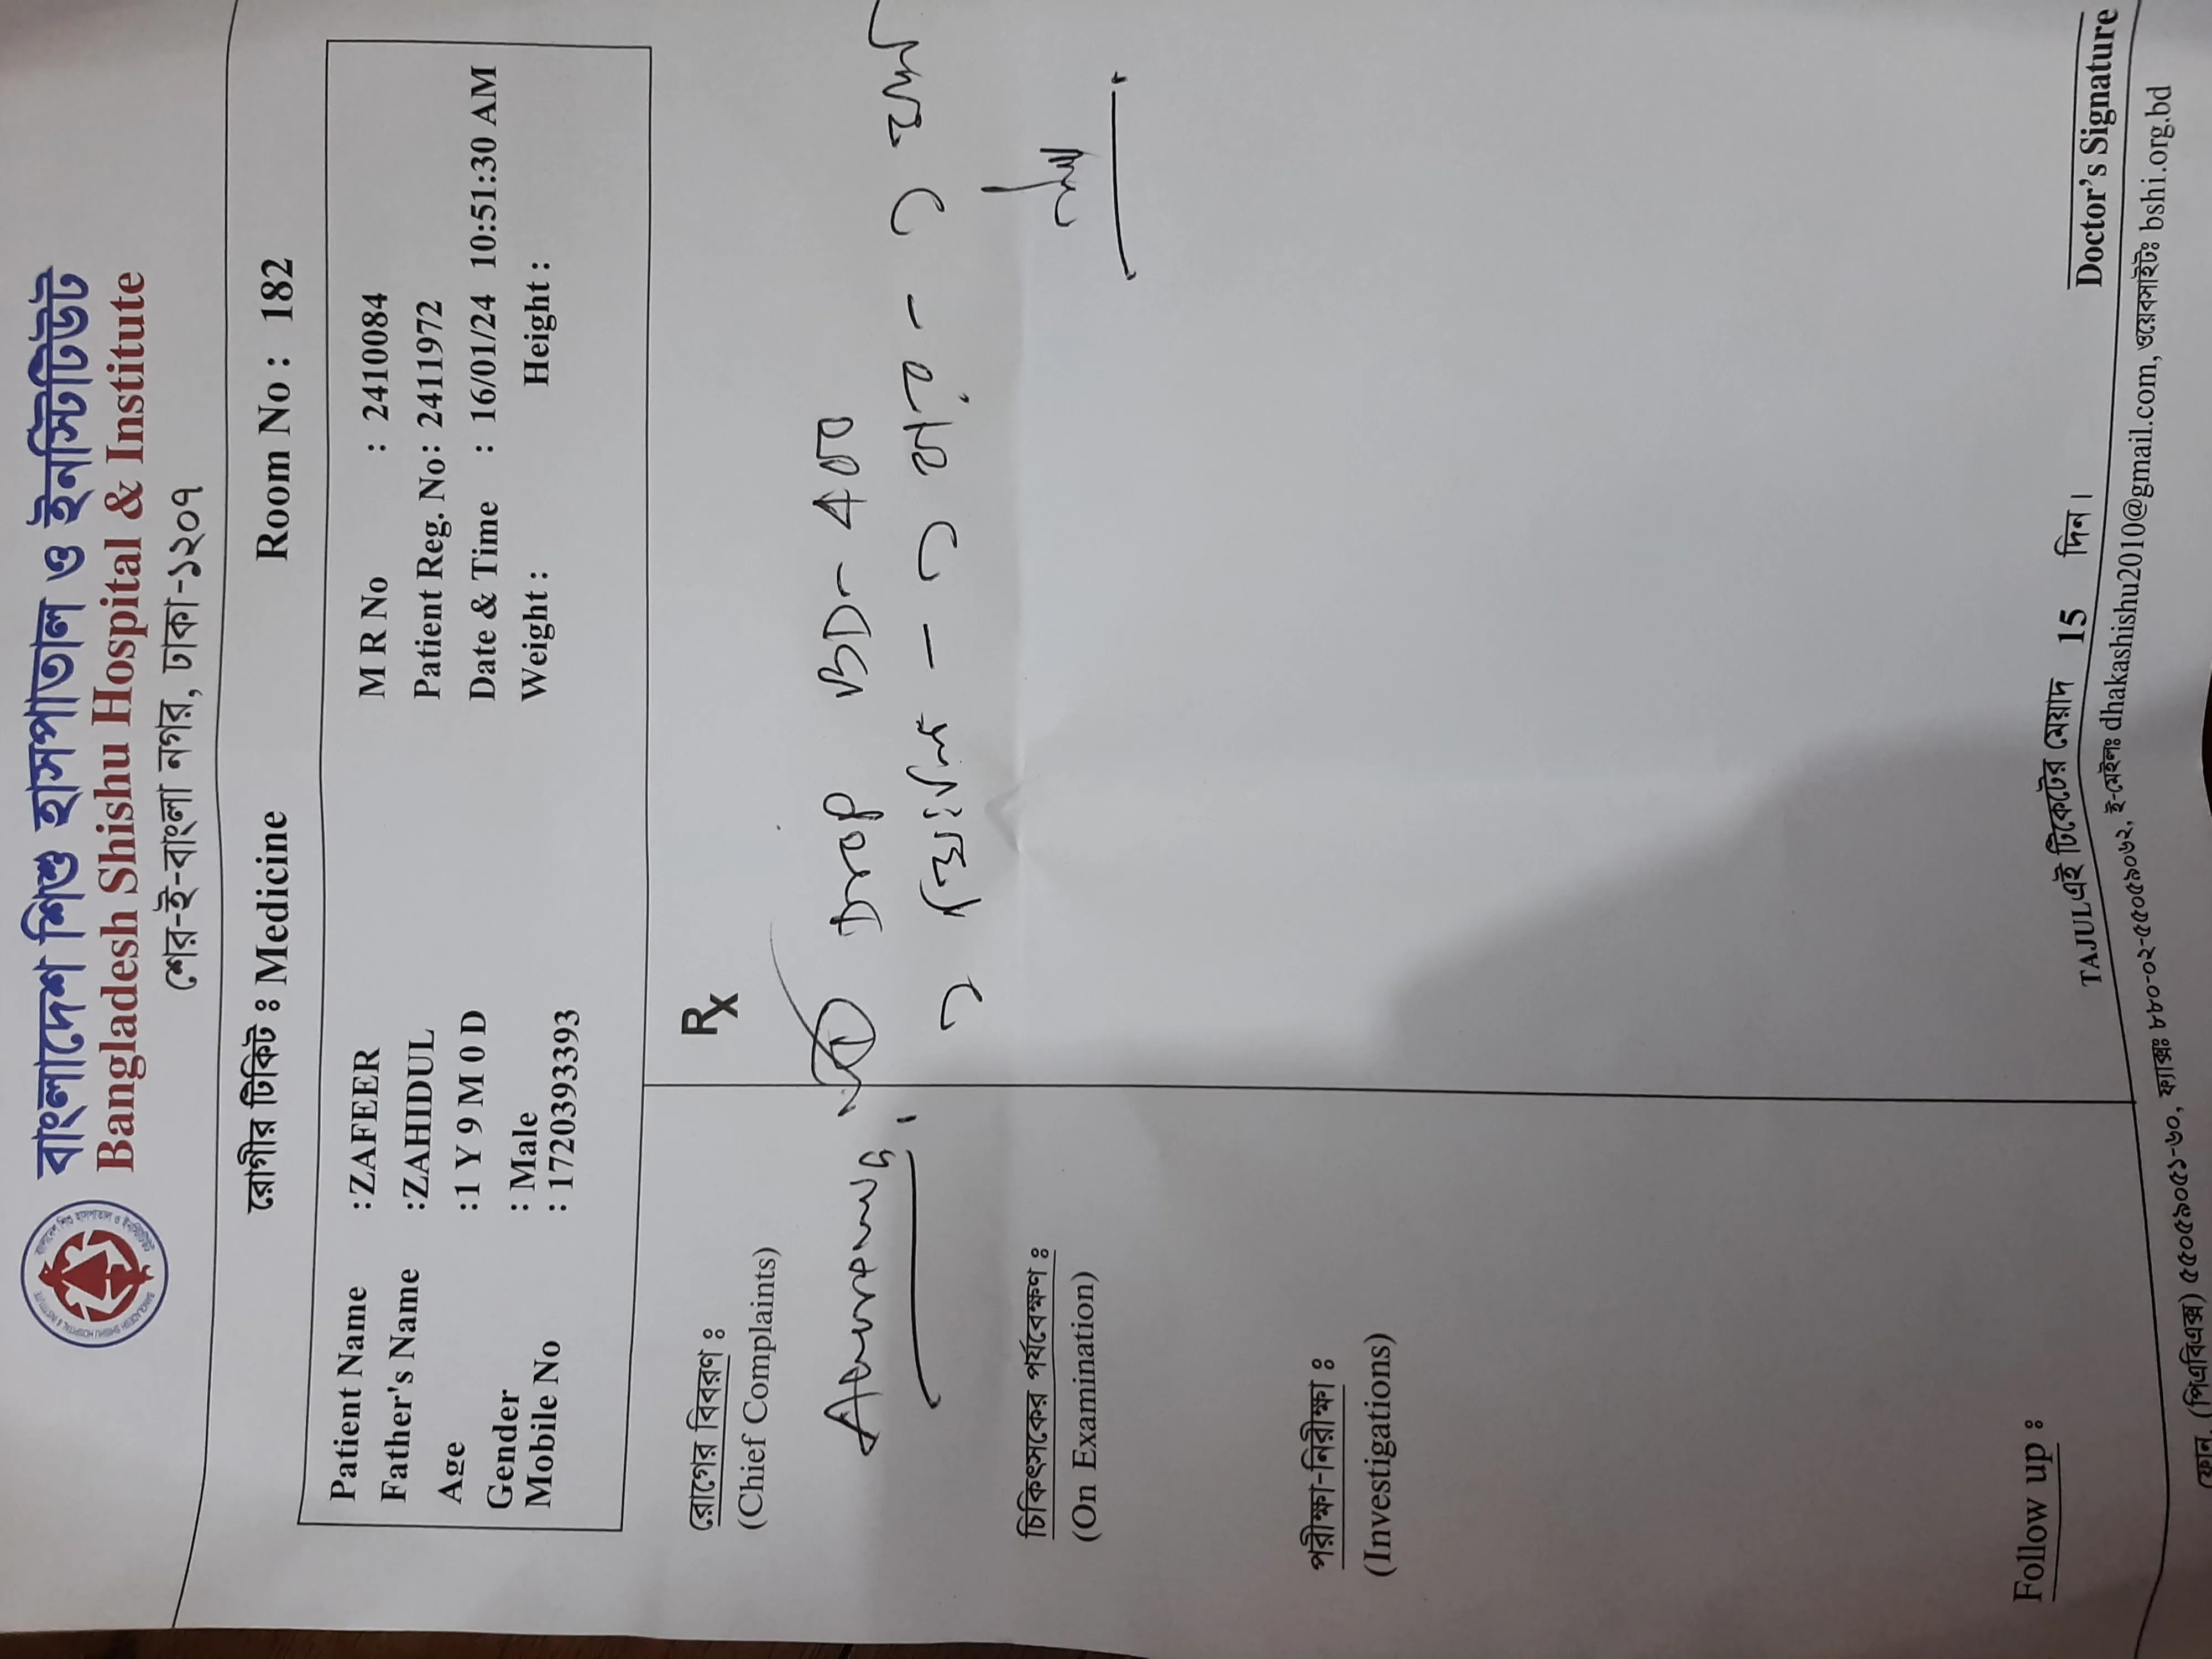 বাংলাদেশ শিশু হাসপাতাল ও ইনস্টিটিউট
Bangladesh Shishu Hospital & Institute
শের-ই-বাংলা নগর, ঢাকা-১২০৭
রোগীর টিকিট : Medicine Room No : 182
Patient Name : ZAFEER M R No : 2410084
Father's Name : ZAHIDUL Patient Reg. No : 2411972
Age : 1 Y 9 M 0 D Date & Time : 16/01/24 10:51:30 AM
Gender : Male Weight : Height :
Mobile No : 1720393393
রোগের বিবরণ :
(Chief Complaints)
Rx
① Drop BD- 400
চিকিৎসকের পর্যবেক্ষণ :
(On Examination)
পরীক্ষা-নিরীক্ষা :
(Investigations)
Follow up :
Doctor's Signature
TAJUL এই টিকেটের মেয়াদ 15 দিন।
ফোন. (পিএবিএক্স) ৫৫০৫৯০৫১-৬০, ফ্যাক্সঃ ৮৮০-০২-৫৫০৫৯০৬২, ই-মেইলঃ dhakashishu2010@gmail.com, ওয়েবসাইটঃ bshi.org.bd